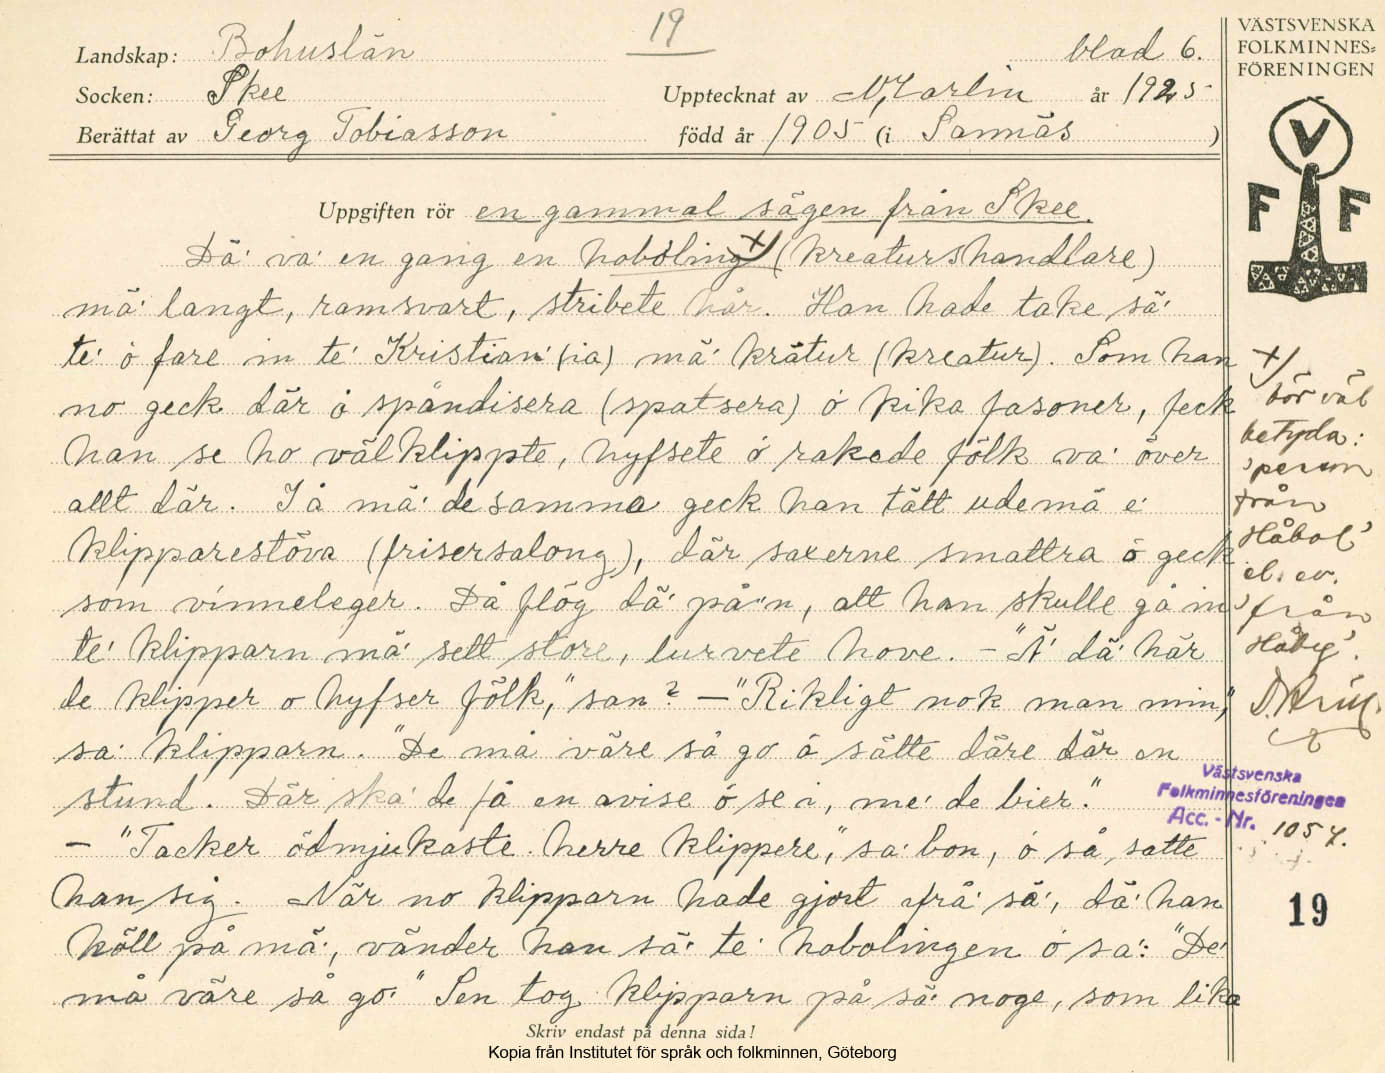 19
Landskap: Bohuslän
blad 6.
Socken: Skee
Upptecknat av N. Karlin år 1925
Berättat av Georg Tobiasson
född år 1905 (i Sannäs )
VÄSTSVENSKA
FOLKMINNES=
FÖRENINGEN
V
F F
Uppgiften rör en gammal sägen från Skee.
Dä' va' en gang en noboling +) (kreaturshandlare)
mä' langt, ramsvart, stribete hår. Han hade take sä'
te' ó fare in te' Kristian' (ia) mä' krätur (kreatur). Som han
no geck där ó spändisera (spatsera) ó kika fasoner, feck
han se ho välklippte, hyfsete ó rakede fölk va' över
allt där. I å mä' desamma geck han tätt udemä e'
klipparestöva (frisersalong), där saxerne smattra ó geck
som vinneleger. Då flög dä' på'n, att han skulle gå in
te' klipparn mä' sett store, lurvete hove. - "Ä' dä' här
de klipper o hyfser fölk," san? - "Rikligt nok man min,"
sa' klipparn. "De må väre så go å sätte däre där en
stund. Där ska' de få en avise ó se i, me' de bier."
- "Tacker ödmjukaste herre klippere," sa' bon, ó så satte
han sig. När no klipparn hade gjort ifrå' sä', dä' han
köll på mä', vänder han sä' te' nobolingen ó sa': "De'
må väre så go'" Sen tog klipparn på sä' noge, som lika
+)
bör väl
betyda:
'person
från
Håbol'
el. ev.
'från
Håby'.
Västsvenska
Folkminnesföreningen
Acc. - Nr. 1054.
19
Skriv endast på denna sida!
Kopia från Institutet för språk och folkminnen, Göteborg